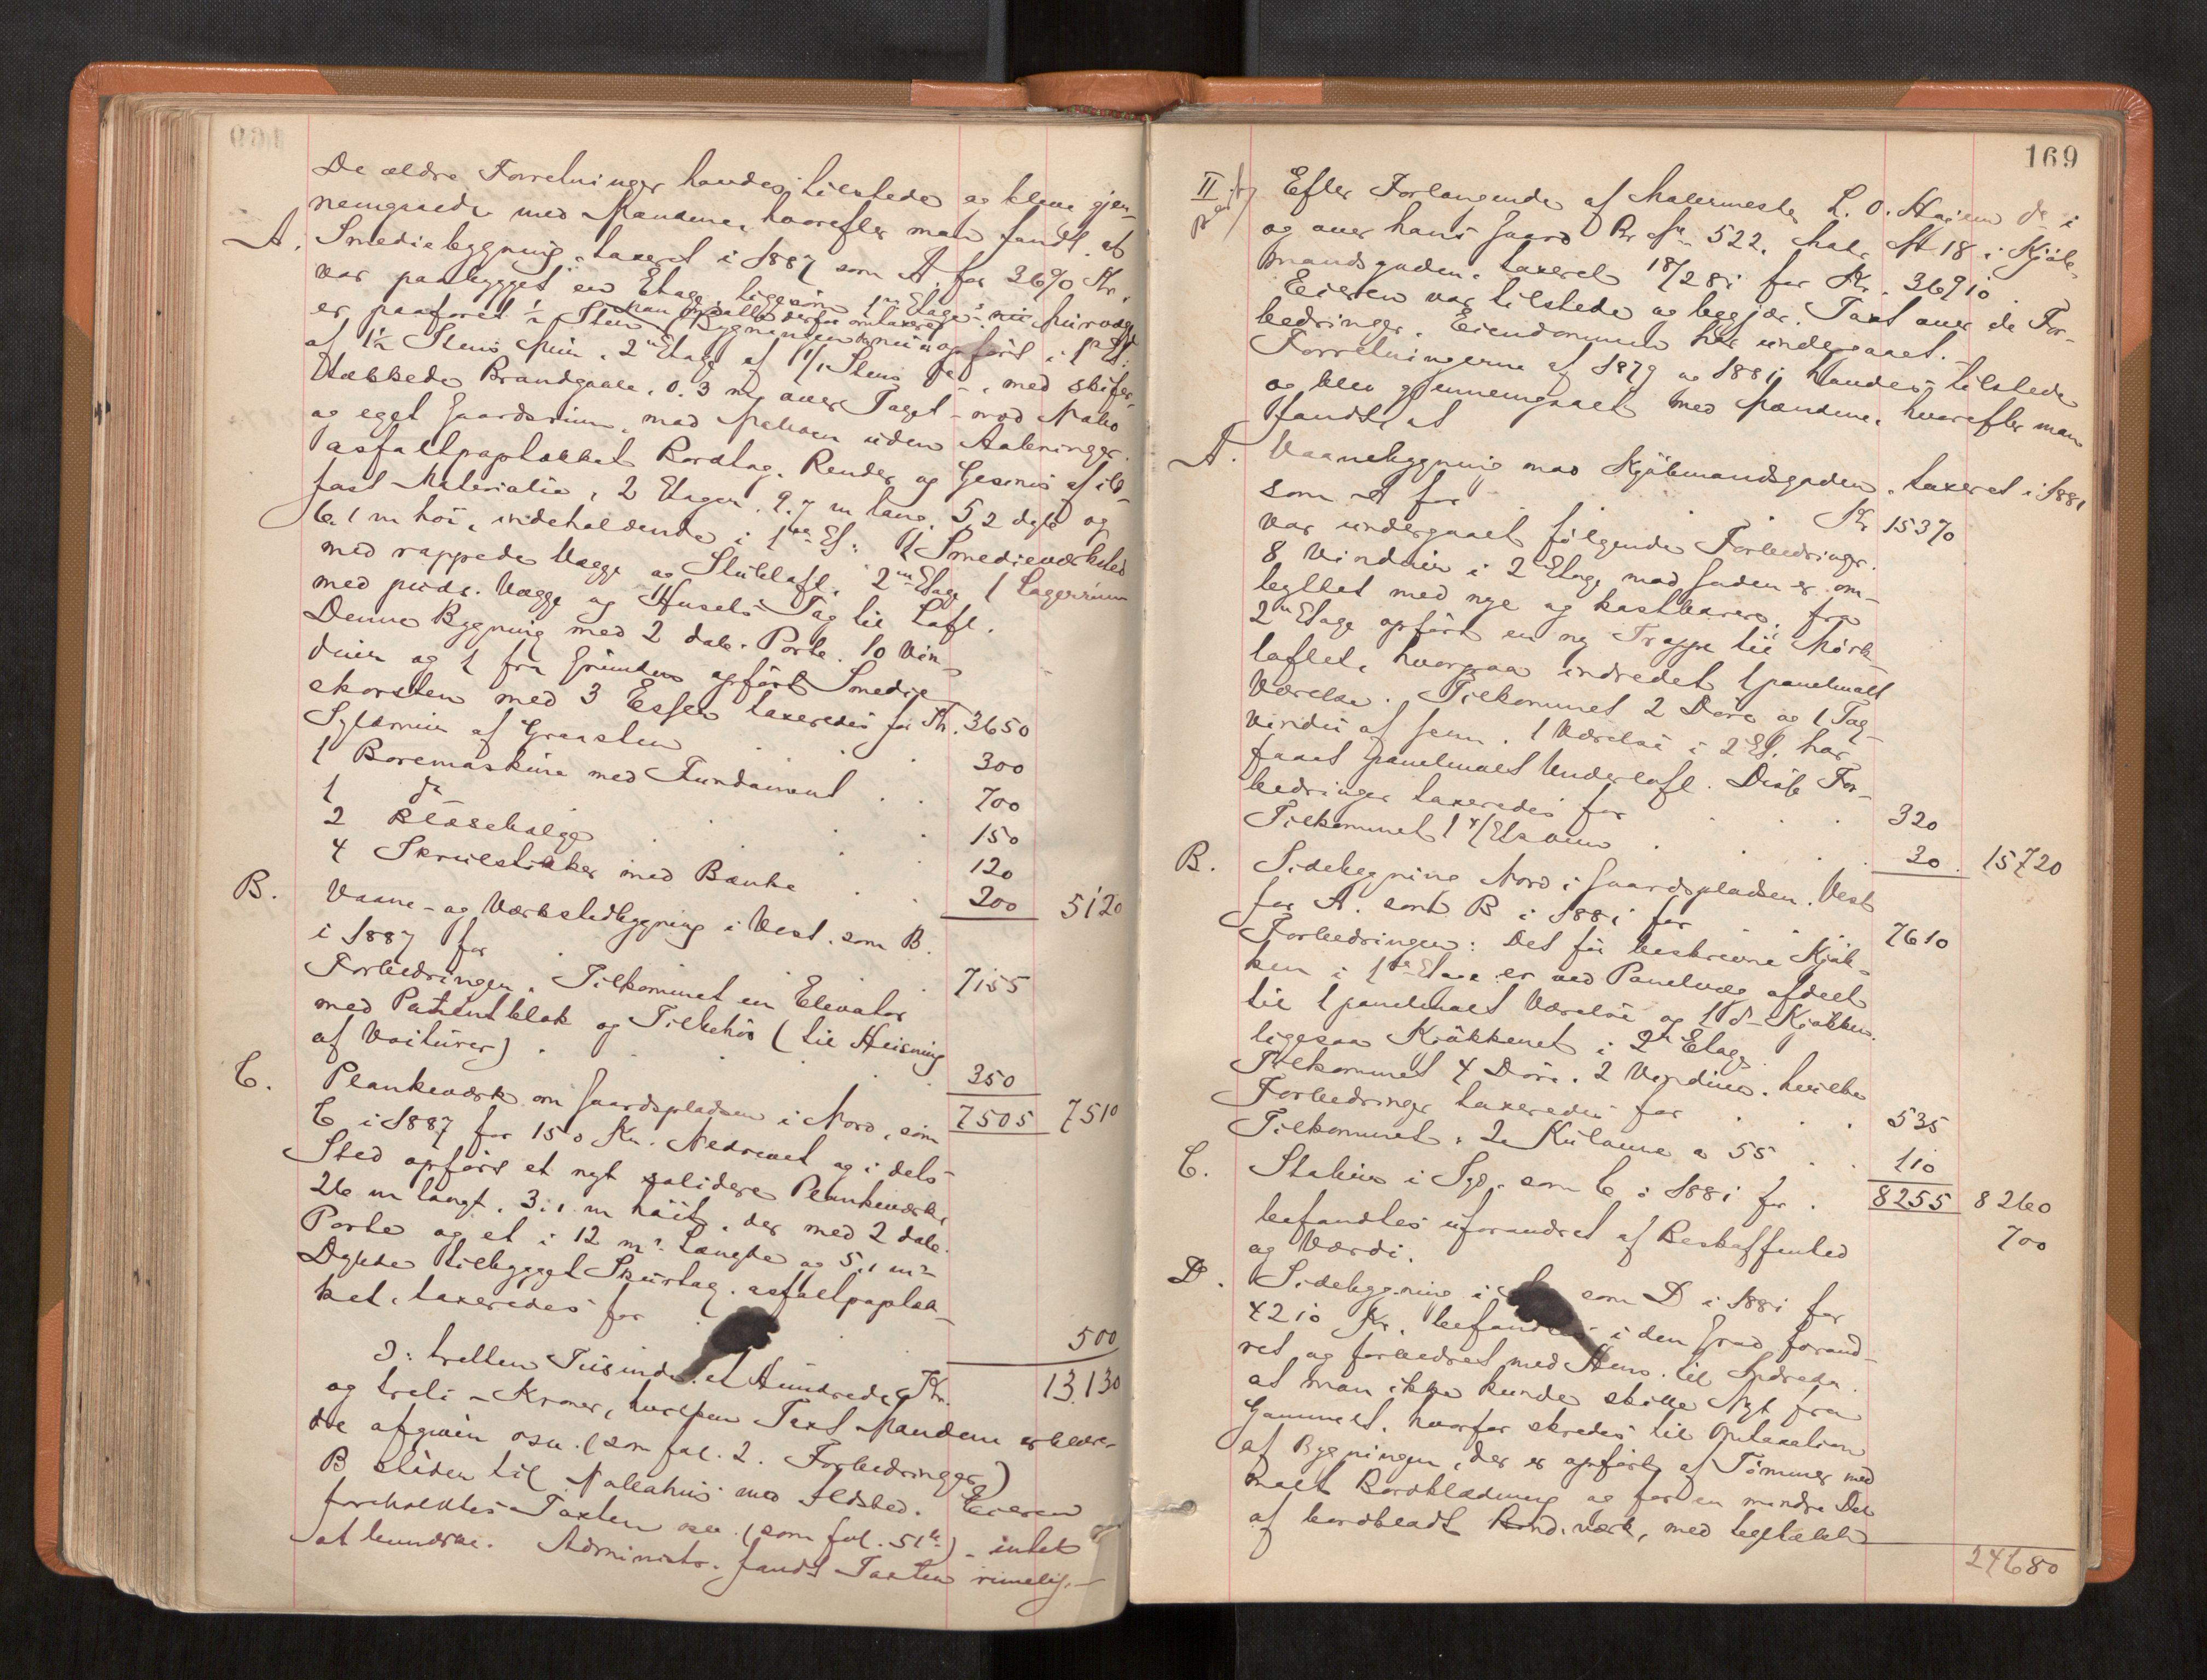 De ældre Forretninger havdes tilstede og bleve gjen-
nemgaaede med Mændene, hvorefter man fandt, at
A. Smediebygning, taxeret i 1887 som A. for 3690 Kr.
var paabygget en Etage, ligesom 1ste Etages Murvægge
er paaforet 1/2 Sten, man maatte derfor omtaxere Bygningen, som nu er opført i 1ste Et.
af 1 1/2 Stens Mur, 2den Etage af 1/1 Stens do, med skifer-
tækkede Brandgavle, 0.3 m over Taget mod Nabo
og eget Gaardsrum, mod Naboen uden Aabninger,
asfaltpaptækket Bordtag, Render og Gesims af ild-
fast Materiale, 2 Etager, 9.7 m lang, 5,2 dyb og
6.1 m høi, indeholdende i 1ste Et: 1 Smedieværksted
med rappede Vægge og Stubloft, 2den Etage 1 Lagerrum
med puds. Vægge og Husets Tag til Loft.
Denne Bygning med 2 dob. Porte, 10 Vin-
duer og 1 fra Grunden opført Smedje-
skorsten med 3 Esser taxeredes for Kr. 3650
Syldmur af Graasten 300
1 Boremaskine med Fundament 700
1 do 150
2 Blæsebælge 120
4 Skruestikker med Bænke 200 5120
B. Vaane- og Værkstedbygning i Vest, som B.
i 1887 for 7155
Forbedringer. Tilkommet en Elevator
med Patentblok og Tilbehør (til Heisning
af Voiturer) 350
7505 7510
C. Plankeværk om Gaardspladsen i Nord, som
C i 1887 for 150 Kr. Nedrevet og i dets
Sted opført et nyt solidere Plankeværk,
26 m langt, 3.1 m høit, der med 2 dob.
Porte og et i 12 m's Længde og 5.1 m's
Dybde tilbygget Skurtag, asfaltpaptæk-
ket, taxeredes for 500
Kr. 13.130
ɔ: tretten Tusinde et Hundrede
og treti Kroner, hvilken Taxt Mændene erklære-
de afgiven osv. (som fol. 2. Forbedringer)
B støder til Naboehus med Ildsted. Eieren
foreholdtes Taxten osv. (som fol. 51b) - intet
at bemærke. Administr. fandt Taxten rimelig.
169
II Efter Forlangende af Malermester L. O. Hagen do i
og over hans Gaard Br. No 522, Matr. No 18 i Kjøb-
mandsgaden, taxeret 18/2 81 for Kr. 36910.
Eieren var tilstede og begjær. Taxt over de For-
bedringer, Eiendommen har undergaaet.
Forretningerne af 1879 og 1881 havdes tilstede
og blev gjennemgaaet med Mændene, hvorefter man
fandt, at
A. Vaanebygning mod Kjøbmandsgaden, taxeret i 1881
som A for Kr 15370
var undergaaet følgende Forbedringer:
8 Vinduer i 2 Etage mod Gaden er om-
byttet med nye og kostbarere, fra
2den Etage opført en ny Trappe til Mørk-
loftet, hvorpaa indredet 1 panelmalt
Værelse. Tilkommet 2 Døre og 1 Tag-
vindu af Jern. 1 Værelse i 2 Et. har
faaet panelmalt Underloft. Disse For-
bedringer taxeredes for 320
Tilkommet 1 30 15720
B. Sidebygning Nord i Gaardspladsen, Vest
for A. som B i 1881 for 7610
Forbedringer: Det før beskrevne Kjøk-
ken i 1ste Etage er ved Panelvæg afdelt
til 1 panelmalt Værelse og 1 do Kjøkken,
ligesaa Kjøkkenet i 2den Etage.
Tilkommet 4 Døre, 2 Vinduer, hvilke
Forbedringer taxeredes for 535
Tilkommet: 2 Kulovne a 55 110
8255 8260
C. Stabur i Syd, som C i 1881 for 700
befandtes uforandret af Beskaffenhed
og Værdi.
D. Sidebygning i som D i 1881 for
4210 Kr. befandtes i den Grad forand-
ret og forbedret med Hens. til Indreda.
at man ikke kunde skille Nyt fra
Gammelt, hvorfor skredes til Omtaxation
af Bygningen, der er opført af Tømmer med
malt Bordklædning og for en mindre Del
af bordklædt Bind.værk, med tegltækket
24680